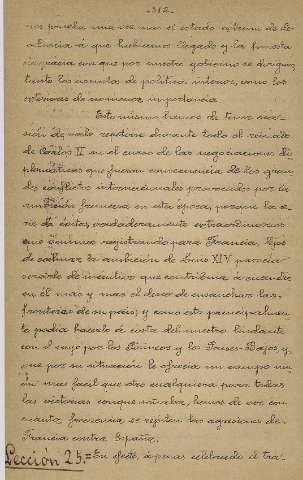 -312-
nos prueba una vez mas el estado extremo de de-
bilidad á que habiamos llegado y la funesta
desgracia con que por nuestro gobierno se dirigian
tanto los asuntos de política interior, como los
exteriores de no menor importancia.
Esto mismo hemos de tener oca-
sión de verlo repetirse durante todo el reinado
de Carlos II en el curso de las negociaciones di-
plomáticas que fueron consecuencia de los gran-
des conflictos internacionales provocados por la
ambición francesa en esta época, porque la se-
rie de éxitos, verdaderamente extraordinarios
que venimos registrando para Francia, lejos
de calmar la ambición de Luis XIV parecia
servirle de incentivo que contribuia á encender
en él mas y mas el deseo de ensanchar las
fronteras de su pais; y como esto principalmen-
te podia hacerlo á costa del nuestro lindante
con el suyo por los Pirineos y los Paises-Bajos, y
que por su situación le ofrecia un campo mu-
cho mas facil que otro cualquiera para todas
las victorias conque soñaba, hemos de ver con
cuanta frecuencia se repiten las agresiones de
Francia contra España.
Lección 25.= En efecto, apenas celebrado el tra-